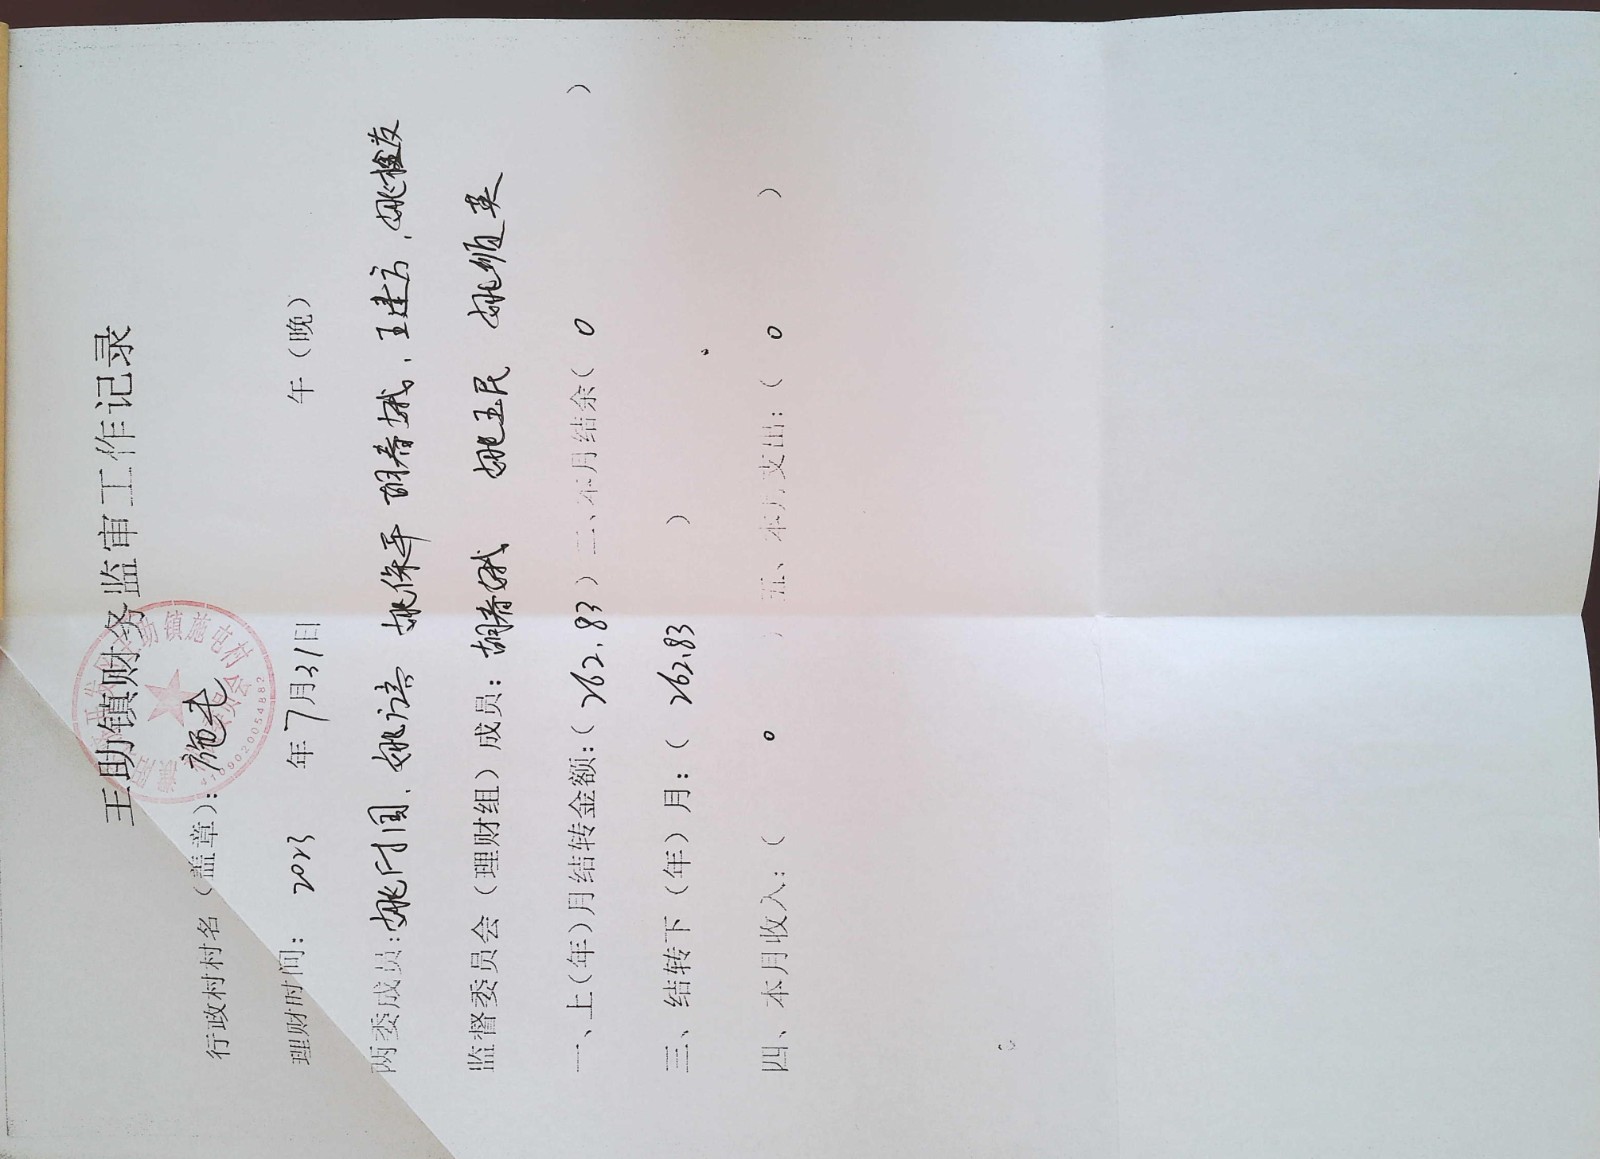 王助镇财务监审工作记录
行政村村名（盖章）：施屯
理财时间： 2023 年7月31日 午（晚）
两委成员：姚付国、姚 姚保平 胡春娥、王建方、姚
监督委员会（理财组）成员：胡春娥 姚玉民 姚顺英
一、上（年）月结转金额：（ 262.83 ）二、本月结余（ 0 ）
三、结转下（年）月：（ 262.83 ）
四、本月收入：（ 0 ）五、本月支出：（ 0 ）
助镇施屯村
4109020054882